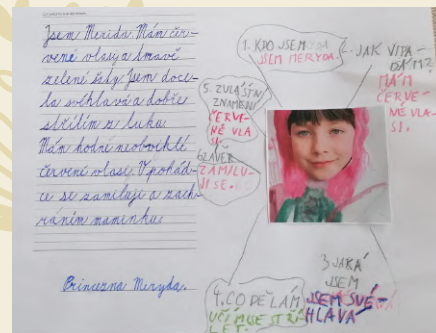 Jsem Merida. Mám čer-
vené vlasy a tmavě
zelené šaty. Jsem doce-
la svéhlavá a dobře
střílím z luku.
Mám hodně neobvyklé
červené vlasi. V pohád-
ce se zamiluji a zach-
ráním maminku
Princezna Meryda.
1. KDO JSEM
JSEM MERYDA.
2. JAK VIPA-
DÁM?
MÁM
ČERVE-
NÉ VLA-
SI.
5. ZVLÁŠTNÍ
ZNAMENÍ
ČERVE-
NÉ VLA
SI.
6 ZÁVĚR
ZAMILU-
JI SE.
3 JAKÁ
JSEM
JSEM SVÉ-
HLAVÁ
4. CO DĚLÁM
UČÍM SE STŘÍ
LET.